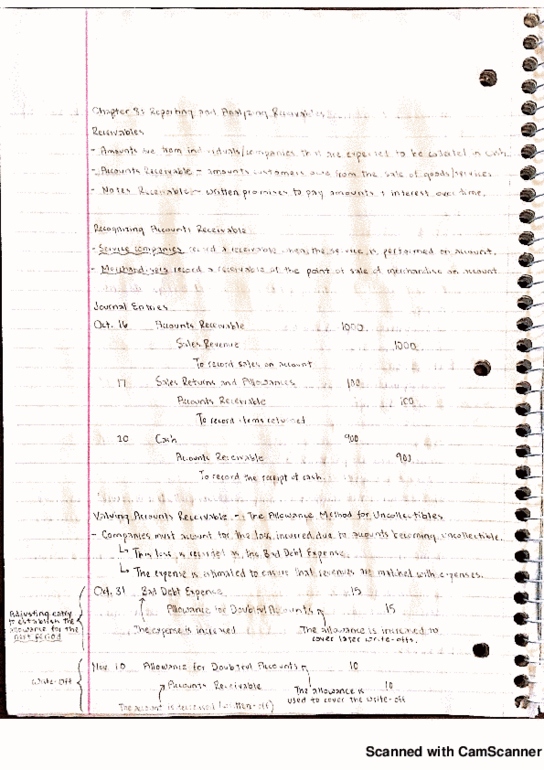 Chapter 8: Reporting and Analyzing Receivables
Receivables
- Amounts due from individuals/companies that are expected to be collected in cash.
- Accounts Receivable - amounts customers owe from the sale of goods/services
- Notes Receivable - written promises to pay amounts & interest over time.
Recognizing Accounts Receivable
- Service companies record a receivable when the service is performed on account.
- Merchandisers record a receivable at the point of sale of merchandise on account
Journal Entries
Oct. 16 Accounts Receivable 1000
Sales Revenue 1000
To record sales on account
17 Sales Returns and Allowances 100
Accounts Receivable 100
To record items returned
20 Cash 900
Accounts Receivable 900
To record the receipt of cash
Valuing Accounts Receivable - The Allowance Method for Uncollectibles
- Companies must account for the loss incurred due to accounts becoming uncollectible.
↳ This loss is recorded in the Bad Debt Expense.
↳ The expense is estimated to ensure that revenues are matched with expenses.
Adjusting entry to establish the allowance for the next period
Oct. 31 Bad Debt Expense 15
Allowance for Doubtful Accounts 15
The expense is increased
The allowance is increased to
cover later write-offs.
Write-off
Nov. 10 Allowance for Doubtful Accounts 10
Accounts Receivable 10
The allowance is
used to cover the write-off
The account is decreased (written-off)
Scanned with CamScanner